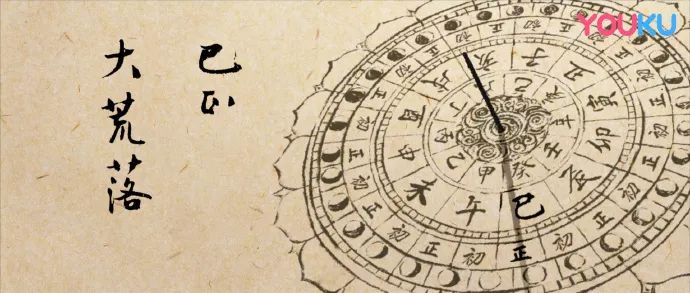 YOUKU
巳正
大荒落
初 正 初 正 初 正 初 正 初 正 初 正 初 正 初 正 初 正 初 正 初 正
亥 子 丑 寅 卯 辰 巳 午 未 申 酉 戌
己 辛 壬 癸 甲 乙 丙 丁